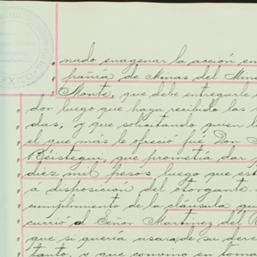 nado enagenar la acción en
pañia de Minas del Mine
Monte, que debe entregarle
dor luego que haya recibido las
das, y que solicitando quien l
el que más le ofreció fué Don
Béistegui, que prometia dar
diez mil pesos luego que est
a disposición del otorgante.
cumplimento de la cláusula qu
currió al Señor Martinez del R
que si queria usar de su dere
tanto, y que convino en toma